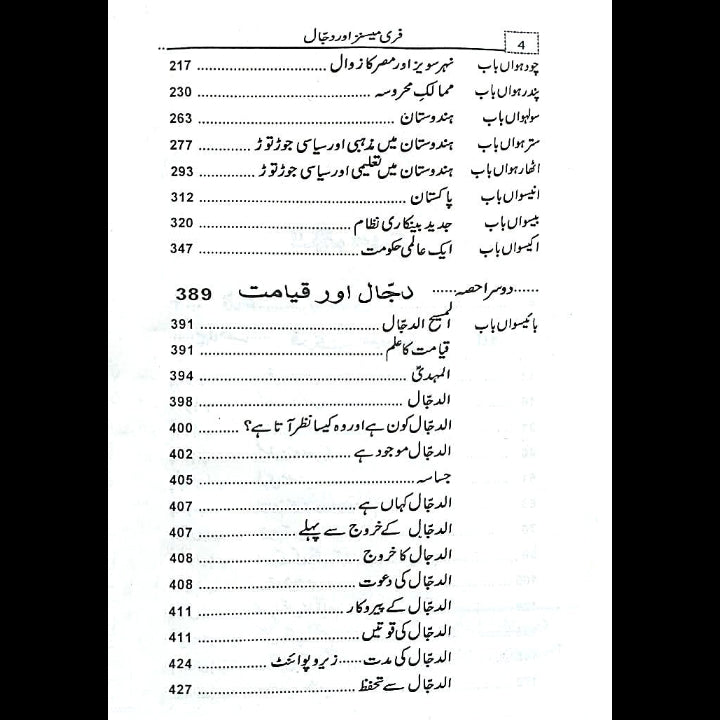 4 فری میسنز اور دجّال
چودہواں باب نہر سویز اور مصر کا زوال ........................ 217
پندرہواں باب ممالکِ محروسہ ........................ 230
سولہواں باب ہندوستان ........................ 263
سترہواں باب ہندوستان میں مذہبی اور سیاسی جوڑ توڑ ............ 277
اٹھارہواں باب ہندوستان میں تعلیمی اور سیاسی جوڑ توڑ ............ 293
انیسواں باب پاکستان ........................ 312
بیسواں باب جدید بینکاری نظام ........................ 320
اکیسواں باب ایک عالمی حکومت ........................ 347
......دوسرا حصہ...... دجّال اور قیامت 389
بائیسواں باب المسیح الدجّال ........................ 391
قیامت کا علم ........................ 391
المہدیؑ ........................ 394
الدجّال ........................ 398
الدجّال کون ہے اور وہ کیسا نظر آتا ہے؟ .......... 400
الدجّال موجود ہے ........................ 402
جساسہ ........................ 405
الدجّال کہاں ہے ........................ 407
الدجّال کے خروج سے پہلے ........................ 407
الدجال کا خروج ........................ 408
الدجّال کی دعوت ........................ 408
الدجّال کے پیروکار ........................ 411
الدجّال کی قوتیں ........................ 411
الدجّال کی مدت ...... زیرو پوائنٹ ............ 424
الدجّال سے تحفظ ........................ 427